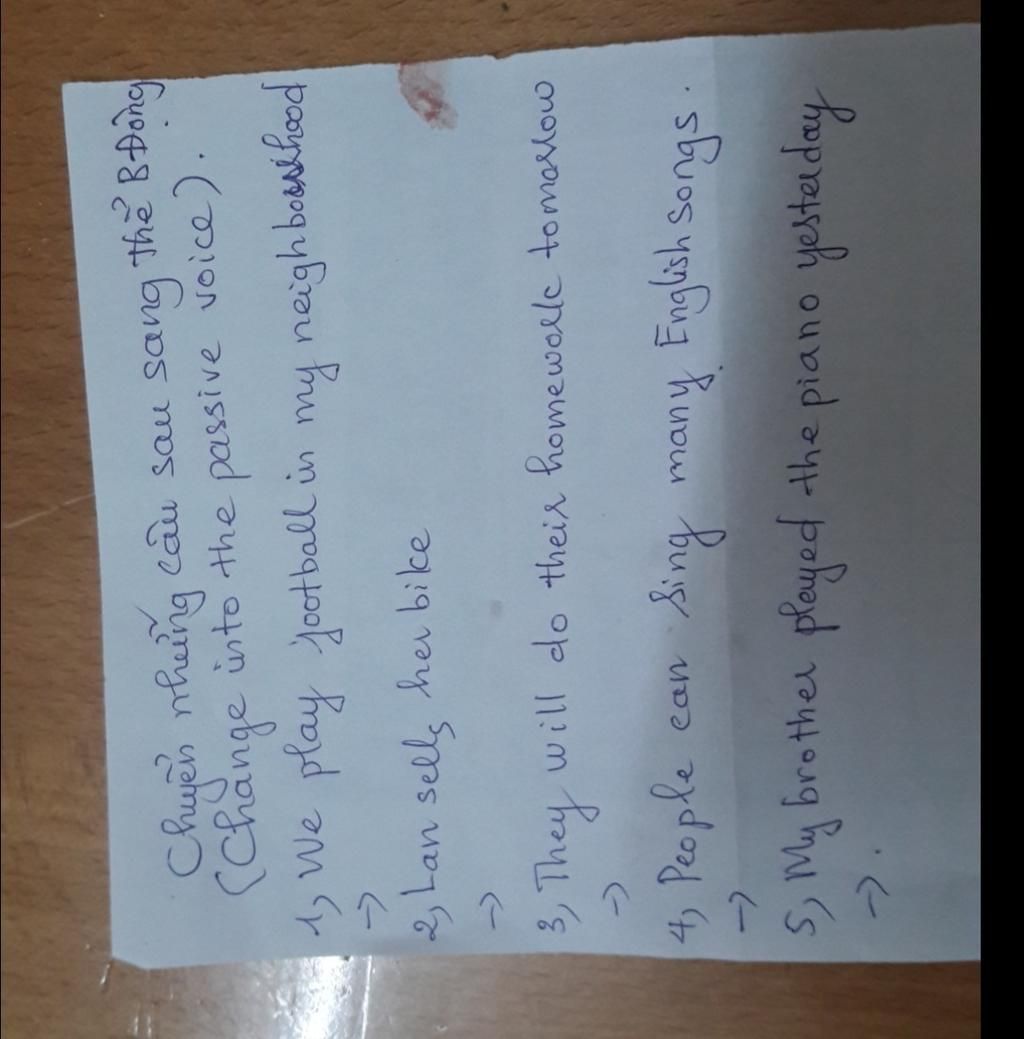 Chuyển những câu sau sang thể B Động
(Change into the passive voice).
1, We play football in my neighbourhood
->
2, Lan sells her bike
->
3, They will do their homework tomorrow
->
4, People can sing many English songs.
->
5, My brother played the piano yesterday
-> .